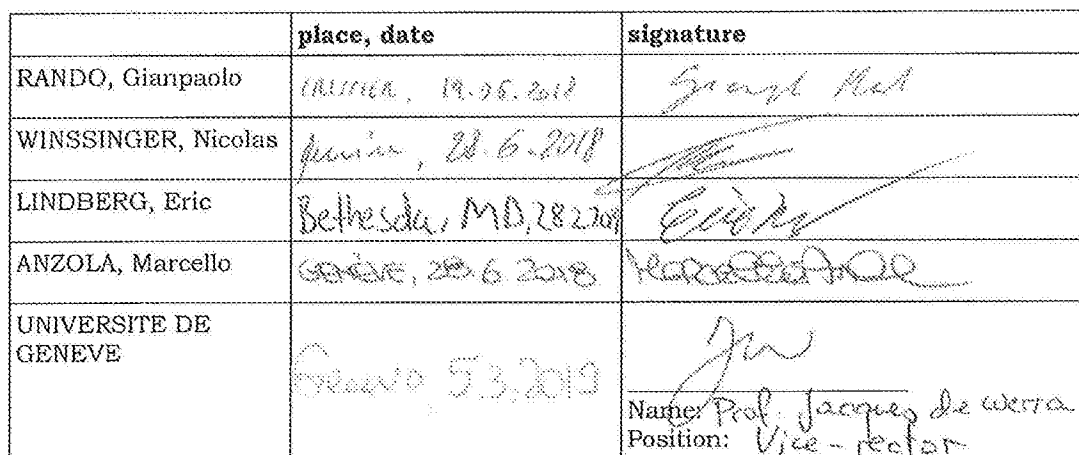 place, date signature
RANDO, Gianpaolo 19.06.2018
WINSSINGER, Nicolas 28.6.2018
LINDBERG, Eric Bethesda, MD,
ANZOLA, Marcello GENÈVE, 28.6.2018
UNIVERSITE DE
GENEVE
Geneva, 5.3.2019
Name: Prof. Jacques de Werra
Position: Vice-rector